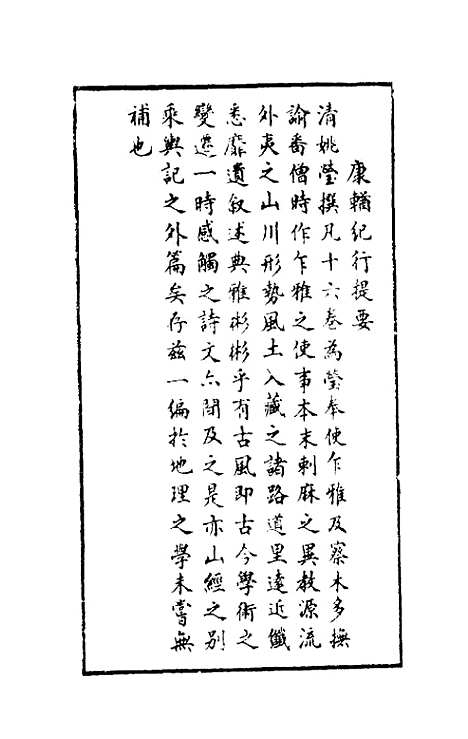 康輶紀行提要
清姚瑩撰凡十六卷為瑩奉使乍雅及察木多撫
諭番僧時作乍雅之使事本末剌麻之異教源流
外夷之山川形勢風土入藏之諸路道里遠近纖
悉靡遺叙述典雅彬彬乎有古風即古今學術之
變遷一時感觸之詩文亦閒及之是亦山經之别
乘輿記之外篇矣存兹一编於地理之學未嘗無
補也